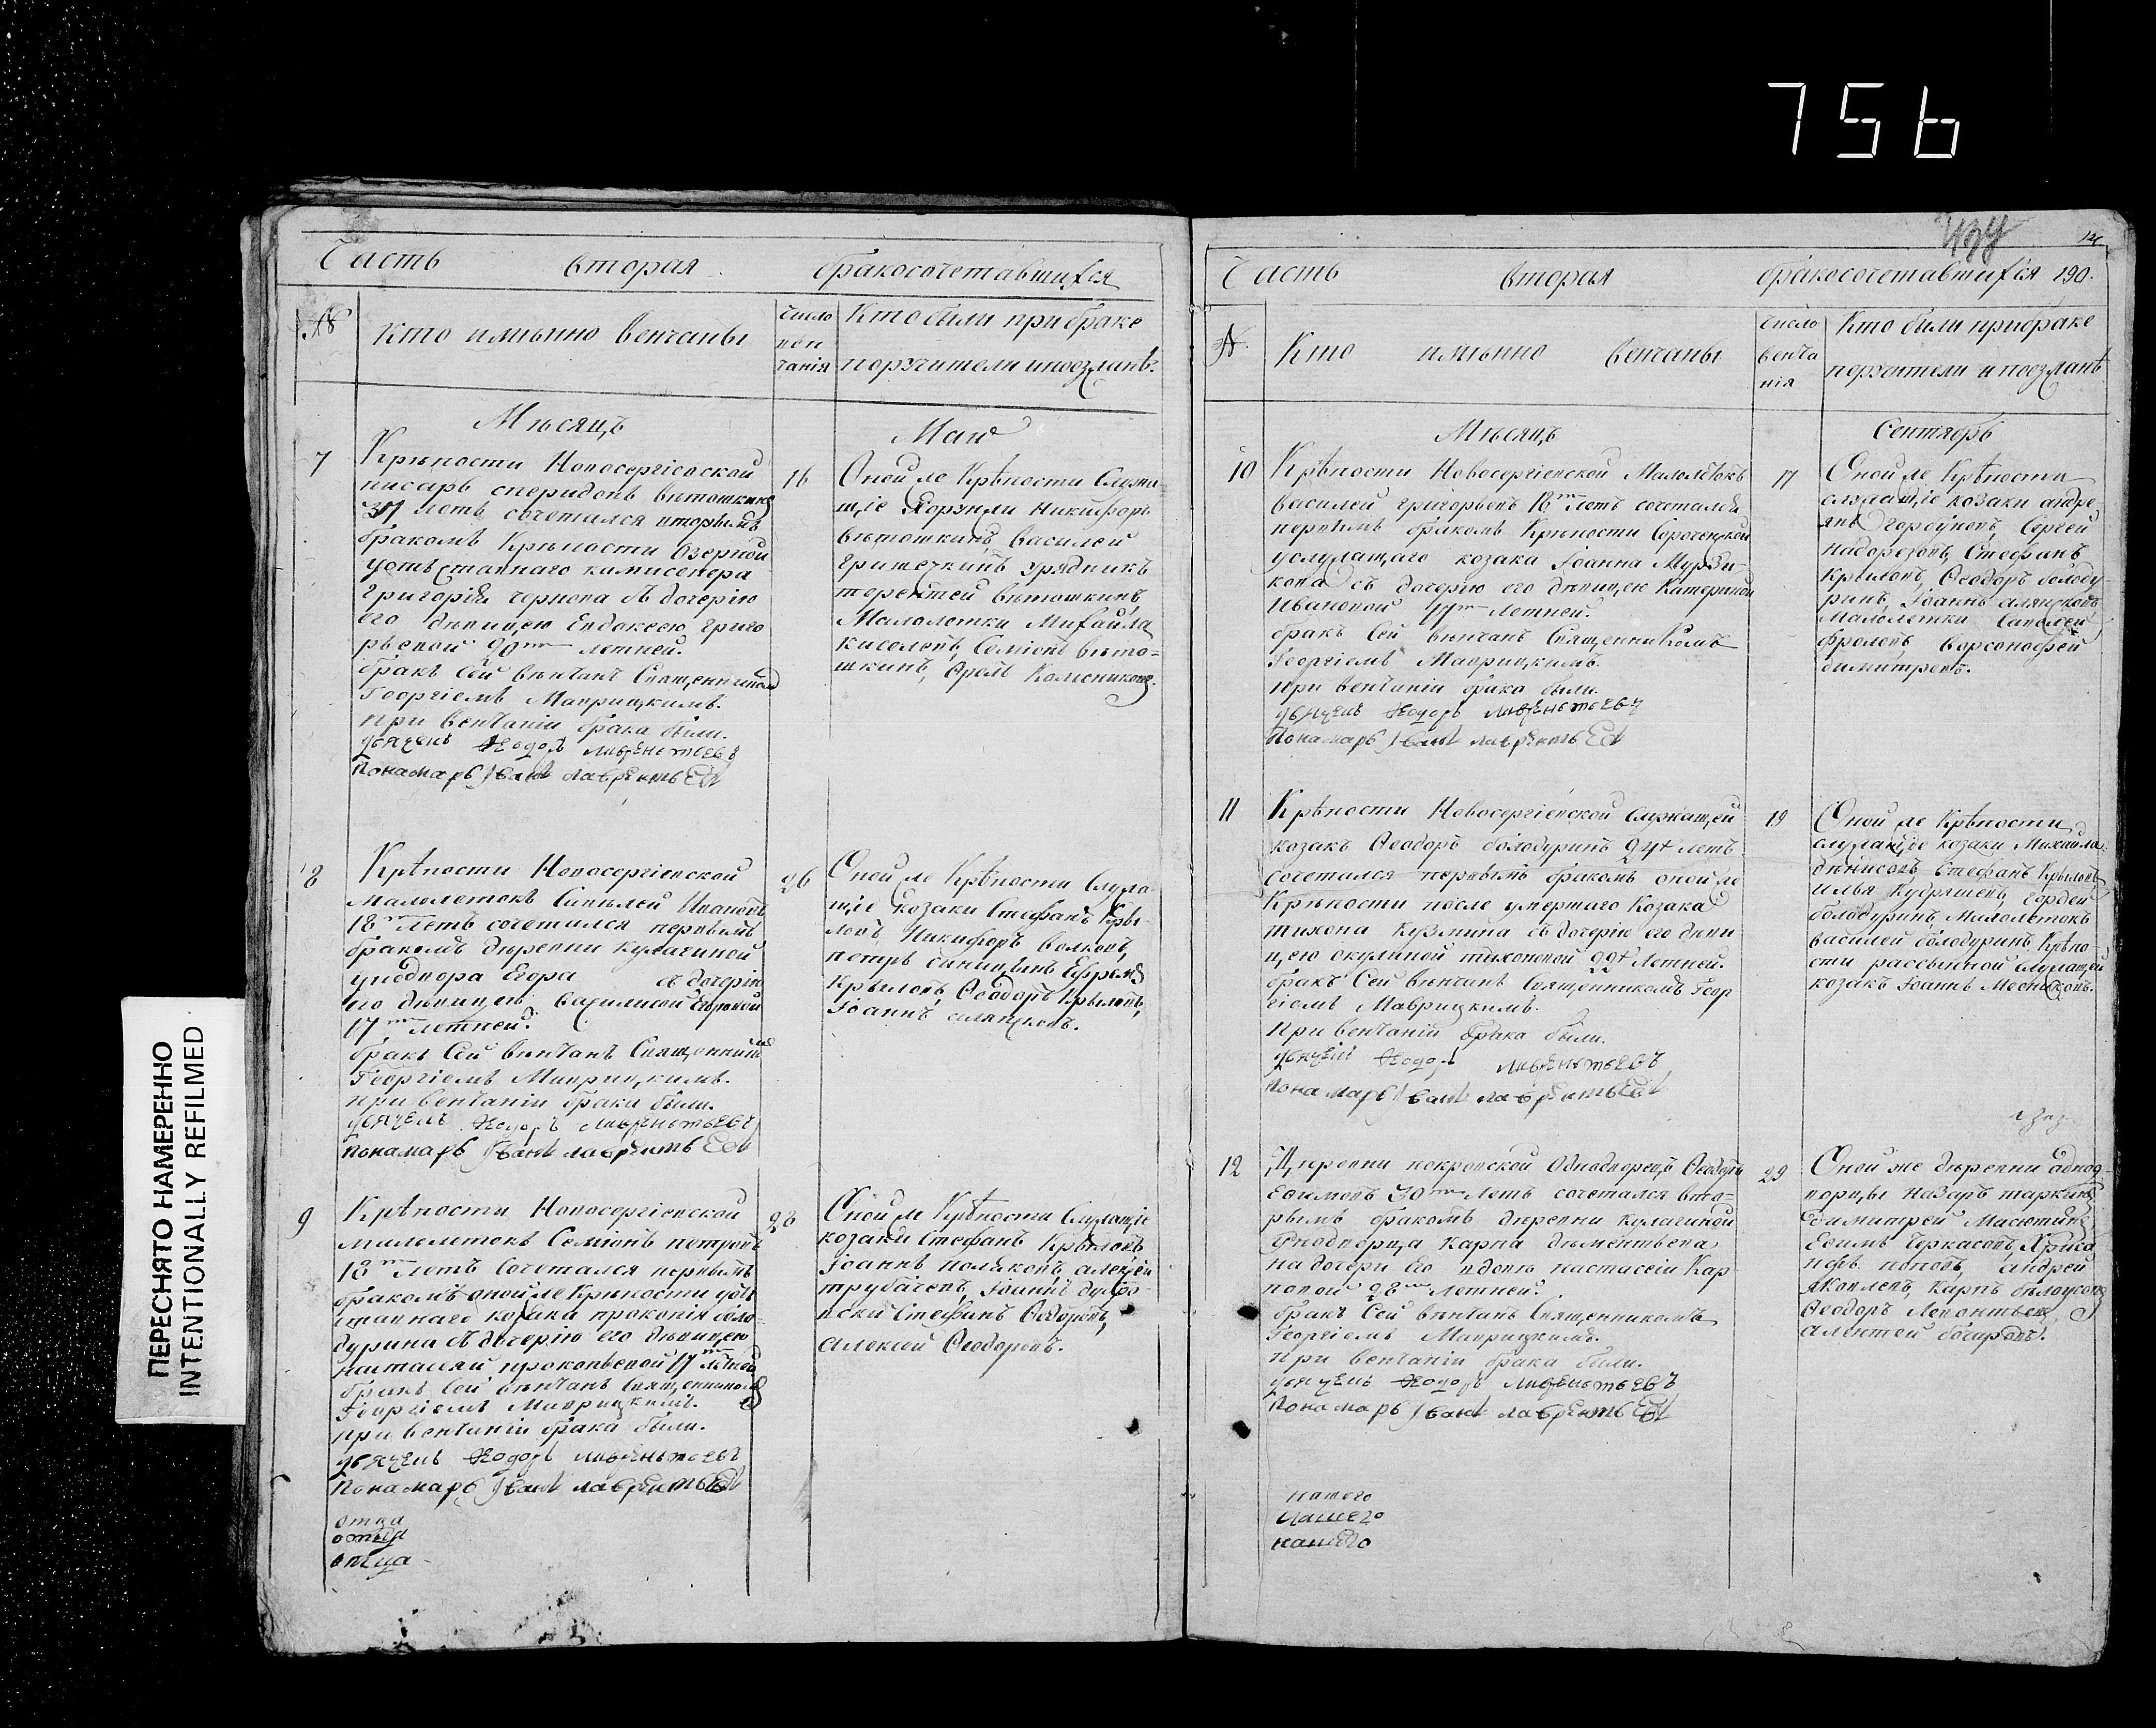 756
ПЕРЕСНЯТО НАМЕРЕННО
INTENTIONALLY REFILMED
Часть вторая бракосочетавшихся
№ кто имянно венчаны
число вен чанія
Кто были при браке
поручители и поезжанѣ
Мѣсяцъ Маій
7
Крѣпости Новосергіевской
писарь спиридонъ ветошкинъ
37 летъ сочетался вторымъ
бракомъ Крѣпости Озерной
у отставнаго
Григорія чернова съ дочерію
его девицею Евдокеею григо
рьевой 20 летней.
бракъ Сей вѣнчанъ Священникомъ
Георгіемъ Маврицкимъ.
при венчаніи брака были.
дьячекъ Ѳеодоръ лаврентьевъ
Понамарь Іванъ лаврентьевъ
16
Оной же Крѣпости Служа
щіе Никифоръ
ветошкинъ василей
гришечкинъ урядникъ
терентей ветошкинъ
Малолетки Михайла
киселевъ, Семіонъ вето-
шкинъ, Колесниковъ.
8
Крѣпости Новосергіевской
малолетокъ Ивановъ
18 летъ сочетался первымъ
бракомъ деревни кулагиной
Егора съ дочерію
его девицею василисой Егоровой
17 летней.
бракъ Сей вѣнчанъ Священникомъ
Георгіемъ Маврицкимъ.
при венчаніи брака были.
дьячекъ Ѳеодоръ лаврентьевъ
Понамарь Іванъ лаврентьевъ
26
Оной же Крѣпости Служа
щіе козаки Стефанъ Кры-
ловъ, Никифоръ волковъ,
петръ синицынъ Ефремъ
Крыловъ, Ѳеодоръ Крыловъ,
Іоаннъ
9
Крѣпости Новосергіевской
малолетокъ Семіонъ петровъ
18 летъ Сочетался первымъ
бракомъ оной же Крѣпости у от
ставнаго козака прокопія боло
дурина съ дочерію его девицею
настасіей прокопьевой 17 летней
бракъ Сей вѣнчанъ Священникомъ
Георгіемъ Маврицкимъ.
при венчаніи брака были.
дьячекъ Ѳеодоръ лаврентьевъ
Понамарь Іванъ лаврентьевъ
28
Оной же Крѣпости Служащіе
козаки Стефанъ Крыловъ,
Іоаннъ поляковъ, алексѣй
трубачевъ, Іоаннъ дубро-
вскій Стефанъ Ѳедоровъ,
алексей Ѳеодоровъ.
отца
отца
отца
Часть вторая бракосочетавшихся 190.
№ Кто имянно венчаны
число венча нія
Кто были при браке
поручители и поезжанѣ
Мѣсяцъ Сентябрь
10
Крѣпости Новосергіевской Малолѣтокъ
василей григорьевъ 18 летъ сочетался
первымъ бракомъ Крѣпости Сорочинской
у служащаго козака Іоанна Мурзи-
кова съ дочерью его девицею Катериной
Ивановой 17 летней.
бракъ Сей вѣнчанъ Священникомъ
Георгіемъ Маврицкимъ.
при венчаніи брака были.
дьячекъ Ѳеодоръ лаврентьевъ
Понамарь Іванъ лаврентьевъ
17
Оной же Крѣпости
служащіе козаки андре-
янъ горбуновъ, Сергей
надорезовъ, Стефанъ
Крыловъ, Ѳеодоръ болоду
ринъ, Іоаннъ
Малолетки Савелей
фролевъ варсонофей
димитревъ.
11
Крѣпости Новосергіевской Служащей
козакъ Ѳеодоръ болодуринъ 24 летъ
Сочетался первымъ бракомъ оной же
Крѣпости после умершаго Козака
тихона Кузмина съ дочерію его деви
цею окулиной тихоновой 22 Летней.
бракъ Сей вѣнчанъ Священникомъ Геор
гіемъ Маврицкимъ.
При венчаніи брака были.
дьячекъ Ѳеодоръ лаврентьевъ
Понамарь Іванъ лаврентьевъ
19
Оной же Крѣпости
служащіе козаки Михайла
денисовъ Стефанъ Крыловъ
илья Кудряшевъ, гордей
болодуринъ, Малолетокъ
василей болодуринъ, Крѣпо
сти рассыпной служащей
козакъ Іоаннъ
12
Деревни покровской Однодворецъ Ѳеодоръ
Ефимовъ 30 Летъ сочетался вто-
рымъ бракомъ деревни кулагиной
Однодворца Карпа дементьева
на дочери Его вдове настасіи Кар
повой 28 Летней.
бракъ Сей вѣнчанъ Священникомъ
Георгіемъ Маврицкимъ.
При венчаніи брака были.
дьячекъ Ѳеодоръ лаврентьевъ
Понамарь Іванъ лаврентьевъ
29
Оной же деревни однод
ворцы Назаръ
димитрей Масютинъ
Ефимъ Черкасовъ, Хриса
нфъ поповъ андрей
яковлевъ, Карпъ
Ѳеодоръ Леонтьевъ

нашего
нашего
нашего